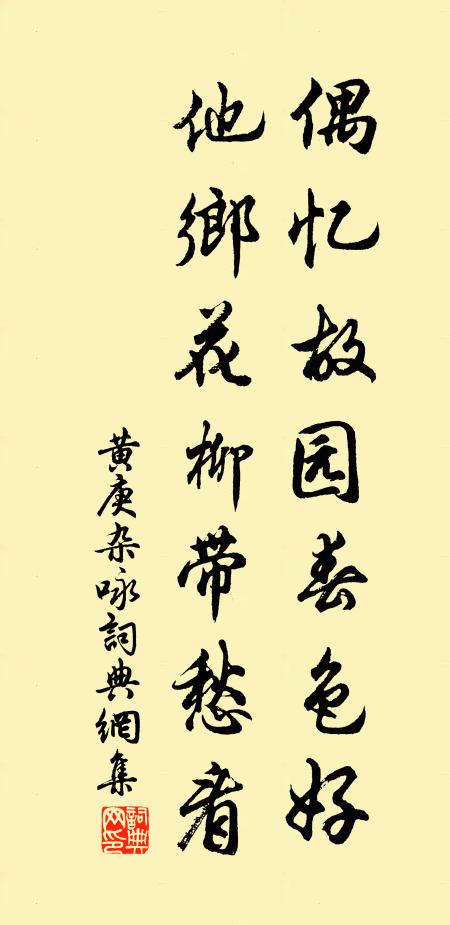 偶忆故园春色好
他鄉花柳带愁看
黄庚杂咏詞典網集
詞典網印